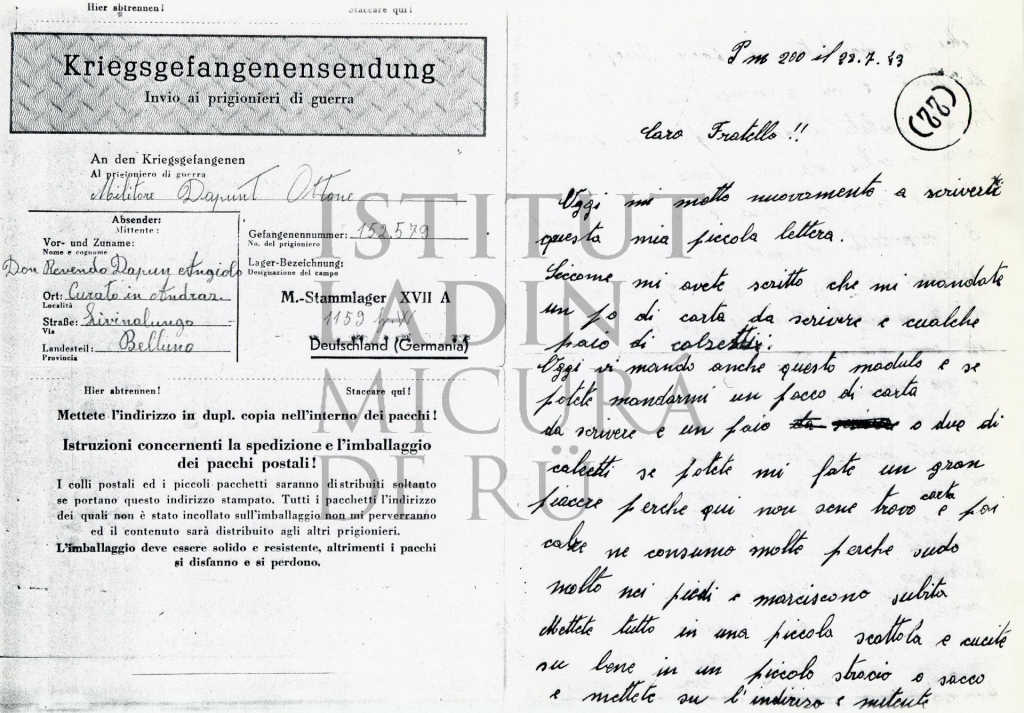 Hier abtrennen!
Staccare qui!
Kriegsgefangenensendung
Invio ai prigionieri di guerra
An den Kriegsgefangenen
Al prigioniero di guerra
Militare Dapunt Ottone
Absender:
Mittente:
Vor- und Zuname:
Nome e cognome
Don Revendo Dapun Angiolo
Ort: Curato in Andraz
Località
Straße: Livinalungo
Via
Landesteil: Belluno
Provincia
Gefangenennummer: 152579
No. del prigioniero
Lager-Bezeichnung:
Designazione del campo
M.-Stammlager XVII A
1159
Deutschland (Germania)
Hier abtrennen!
Staccare qui!
Mettete l'indirizzo in dupl. copia nell'interno dei pacchi!
Istruzioni concernenti la spedizione e l'imballaggio
dei pacchi postali!
I colli postali ed i piccoli pacchetti saranno distribuiti soltanto
se portano questo indirizzo stampato. Tutti i pacchetti l'indirizzo
dei quali non è stato incollato sull'imballaggio non mi perverranno
ed il contenuto sarà distribuito agli altri prigionieri.
L'imballaggio deve essere solido e resistente, altrimenti i pacchi
si disfanno e si perdono.
P m 200 il 22.7.43
(22)
Caro Fratello !!
Oggi mi metto nuovamente a scriverti
questa mia piccola lettera.
Siccome mi avete scritto che mi mandate
un po di carta da scrivere e cualche
paio di calzetti.
Oggi vi mando anche questo modulo e se
potete mandarmi un pacco di carta
da scrivere e un paio o due di
calcetti se potete mi fate un gran
piaccere perche qui non sene trovo carta e poi
calze ne consumo molte perche sudo
molto nei piedi e marciscono subita
Mettete tutto in una piccola scattola e cucite
su bene in un piccolo stracio o sacco
e mettete su l'indirizo e mitente
ISTITUT
LADIN
MICURÁ
DE RÜ